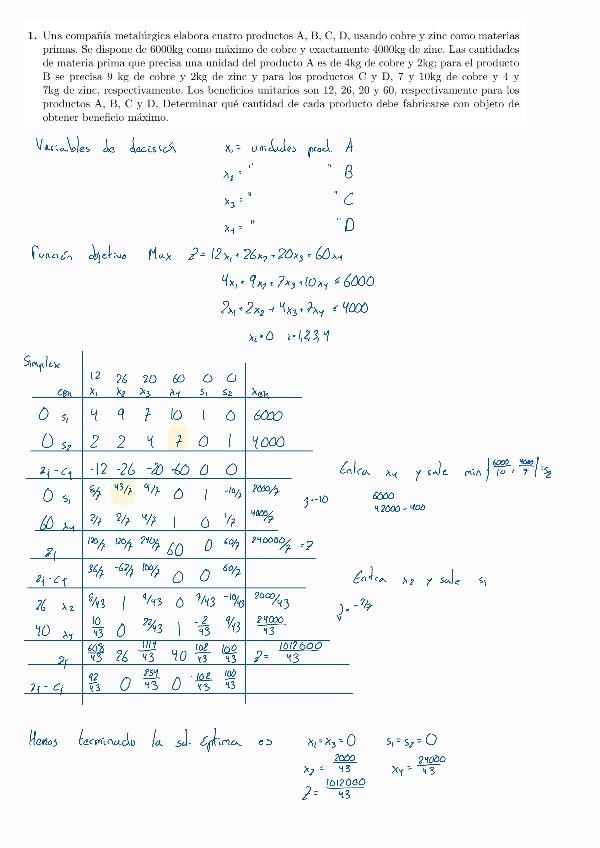 1. Una compañía metalúrgica elabora cuatro productos A, B, C, D, usando cobre y zinc como materias
primas. Se dispone de 6000kg como máximo de cobre y exactamente 4000kg de zinc. Las cantidades
de materia prima que precisa una unidad del producto A es de 4kg de cobre y 2kg; para el producto
B se precisa 9 kg de cobre y 2kg de zinc y para los productos C y D, 7 y 10kg de cobre y 4 y
7kg de zinc, respectivamente. Los beneficios unitarios son 12, 26, 20 y 60, respectivamente para los
productos A, B, C y D. Determinar qué cantidad de cada producto debe fabricarse con objeto de
obtener beneficio máximo.
Variables de decisión x₁ = unidades prod. A
x₂ = " " B
x₃ = " " C
x₄ = " " D
Función objetivo Max Z = 12x₁ + 26x₂ + 20x₃ + 60x₄
4x₁ + 9x₂ + 7x₃ + 10x₄ ≤ 6000
2x₁ + 2x₂ + 4x₃ + 7x₄ ≤ 4000
xᵢ ≥ 0 i = 1,2,3,4
Simplex
12 26 20 60 0 0
x₁ x₂ x₃ x₄ s₁ s₂
0 s₁ 4 9 7 10 1 0 6000
0 s₂ 2 2 4 7 0 1 4000
zj - cj -12 -26 -20 -60 0 0 Entra x₄ y sale min {6000/10, 4000/7} = s₂
0 s₁ 8/7 43/7 9/7 0 1 -10/7 2000/7 j = -10 6000
42000 - 400
60 x₄ 2/7 2/7 4/7 1 0 1/7 4000/7
zj 120/7 120/7 240/7 60 0 60/7 240000/7 = Z
zj - cj 36/7 -62/7 100/7 0 0 60/7 Entra x₂ y sale s₁
26 x₂ 8/43 1 9/43 0 7/43 -10/43 2000/43 j = -2/7
40 x₄ 10/43 0 22/43 1 -2/43 9/43 24000/43
zj 608/43 26 1114/43 40 102/43 100/43 Z = 1012000/43
zj - cj 92/43 0 254/43 0 102/43 100/43
Hemos terminado la sol. óptima es x₁ = x₃ = 0 s₁ = s₂ = 0
x₂ = 2000/43 x₄ = 24000/43
Z = 1012000/43